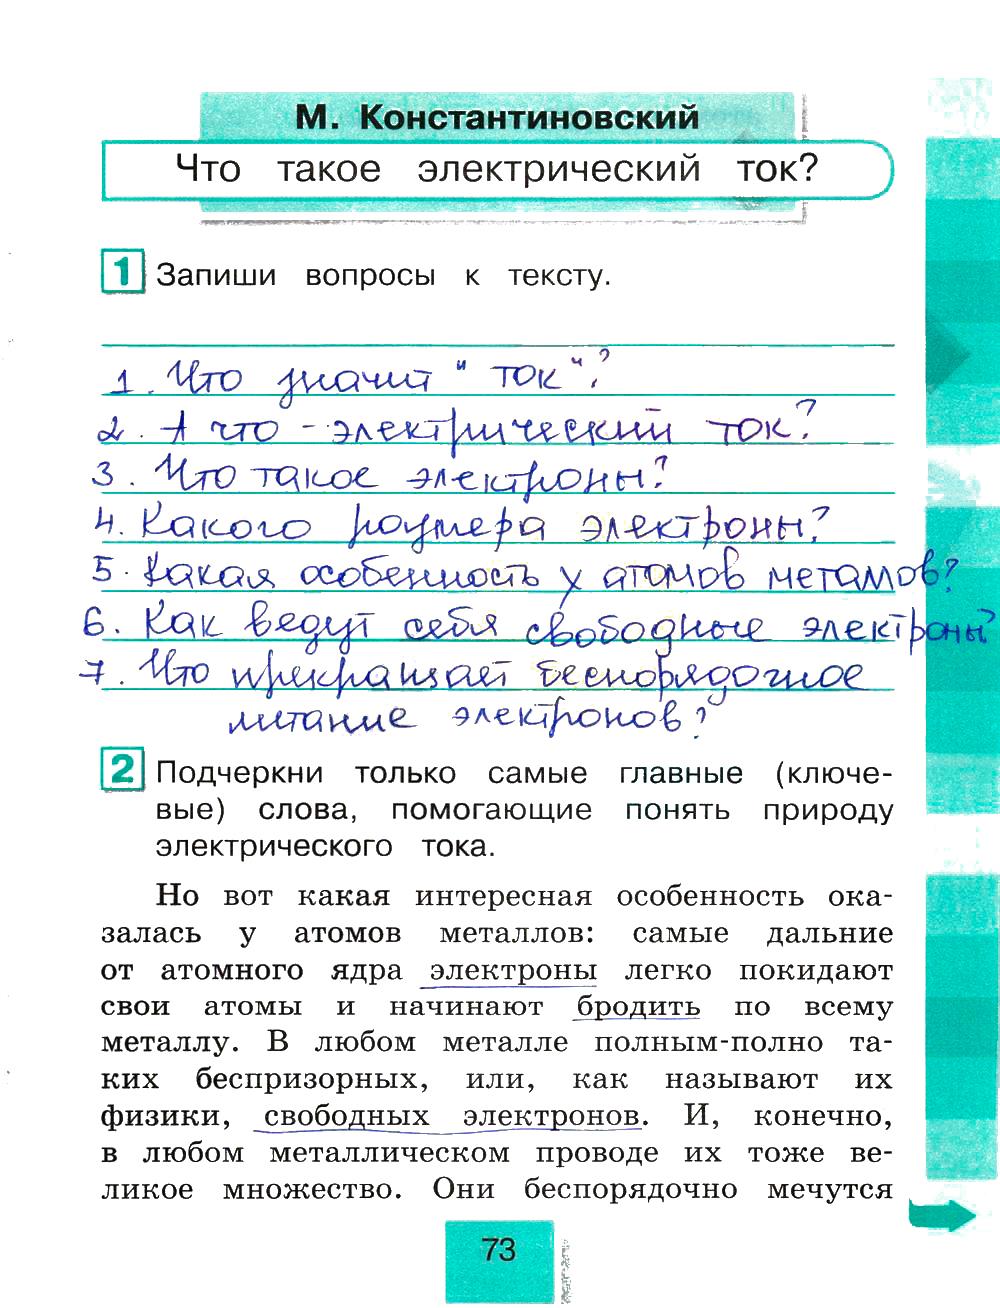 М. Константиновский
Что такое электрический ток?
1 Запиши вопросы к тексту.
1. Что значит "ток"?
2. А что - электрический ток?
3. Что такое электроны?
4. Какого размера электроны?
5. Какая особенность у атомов металлов?
6. Как ведут себя свободные электроны?
7. Что прекращает беспорядочное
метание электронов?
2 Подчеркни только самые главные (ключе-
вые) слова, помогающие понять природу
электрического тока.
Но вот какая интересная особенность ока-
залась у атомов металлов: самые дальние
от атомного ядра электроны легко покидают
свои атомы и начинают бродить по всему
металлу. В любом металле полным-полно та-
ких беспризорных, или, как называют их
физики, свободных электронов. И, конечно,
в любом металлическом проводе их тоже ве-
ликое множество. Они беспорядочно мечутся
73